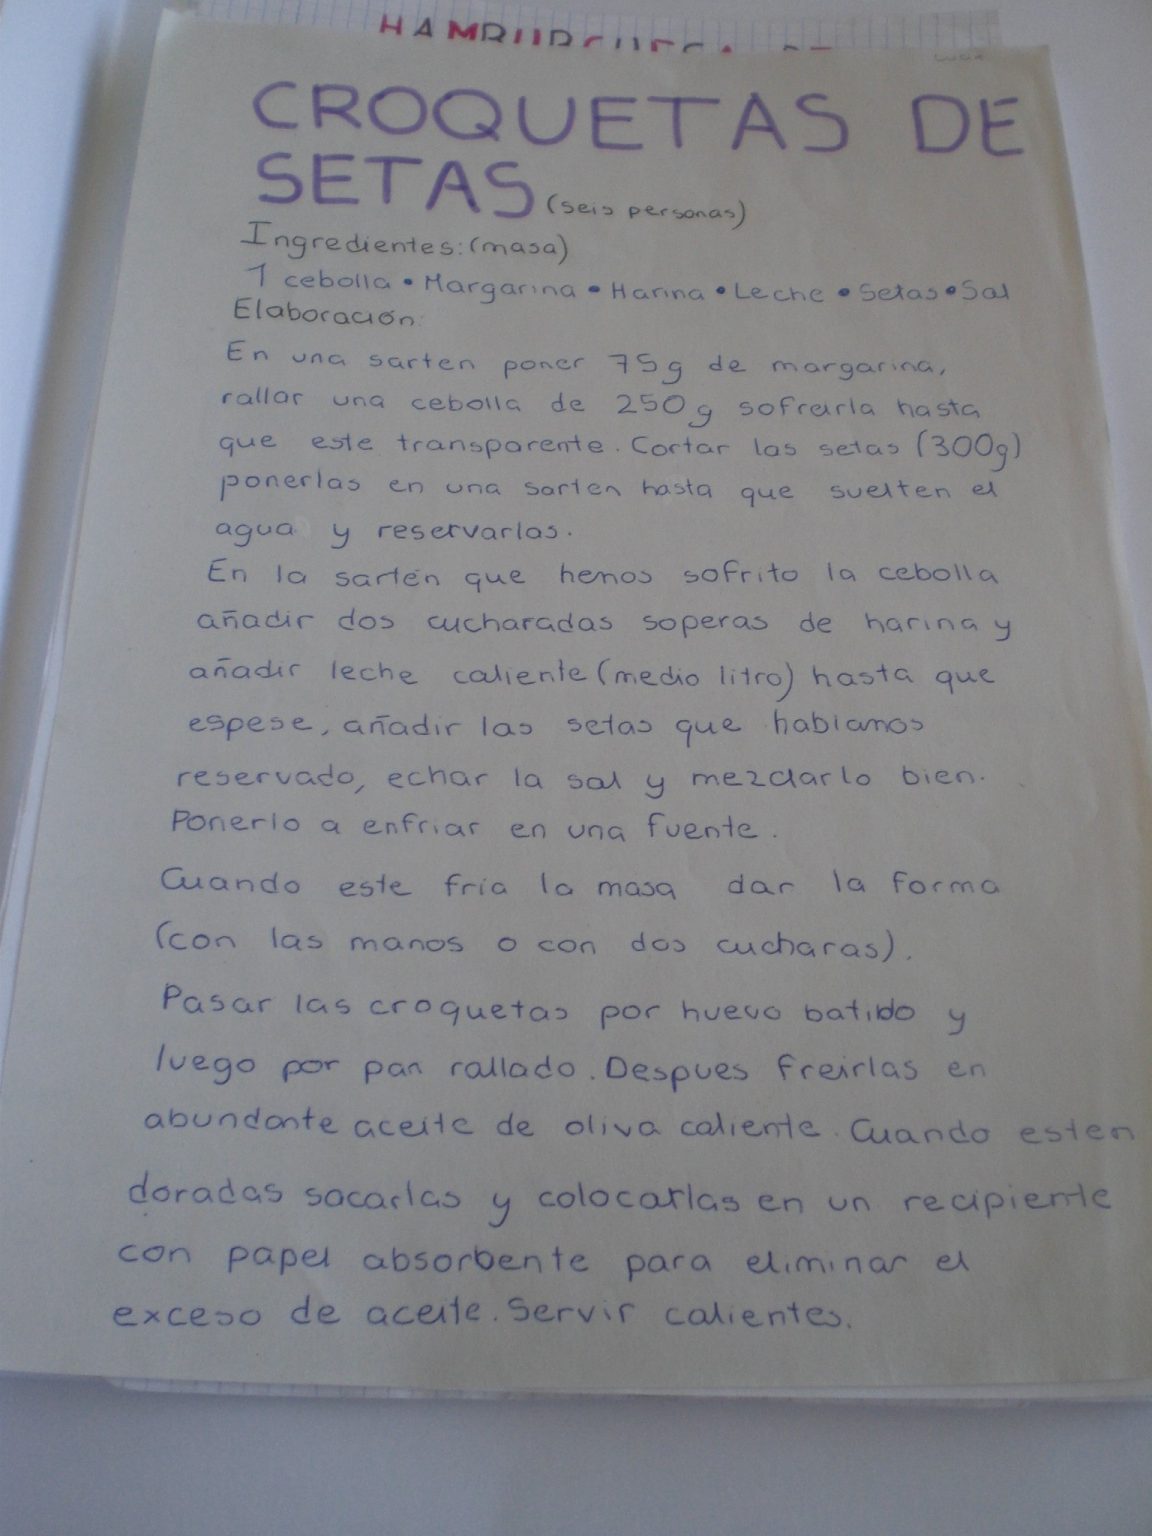 CROQUETAS DE
SETAS (seis personas)
Ingredientes: (masa)
1 cebolla • Margarina • Harina • Leche • Setas • Sal
Elaboración:
En una sarten poner 75g de margarina,
rallar una cebolla de 250g sofreirla hasta
que este transparente. Cortar las setas (300g)
ponerlas en una sarten hasta que suelten el
agua y reservarlas.
En la sartén que hemos sofrito la cebolla
añadir dos cucharadas soperas de harina y
añadir leche caliente (medio litro) hasta que
espese, añadir las setas que habiamos
reservado, echar la sal y mezclarlo bien.
Ponerlo a enfriar en una fuente.
Cuando este fria la masa dar la forma
(con las manos o con dos cucharas).
Pasar las croquetas por huevo batido y
luego por pan rallado. Despues freirlas en
abundante aceite de oliva caliente. Cuando esten
doradas sacarlas y colocarlas en un recipiente
con papel absorbente para eliminar el
exceso de aceite. Servir calientes.